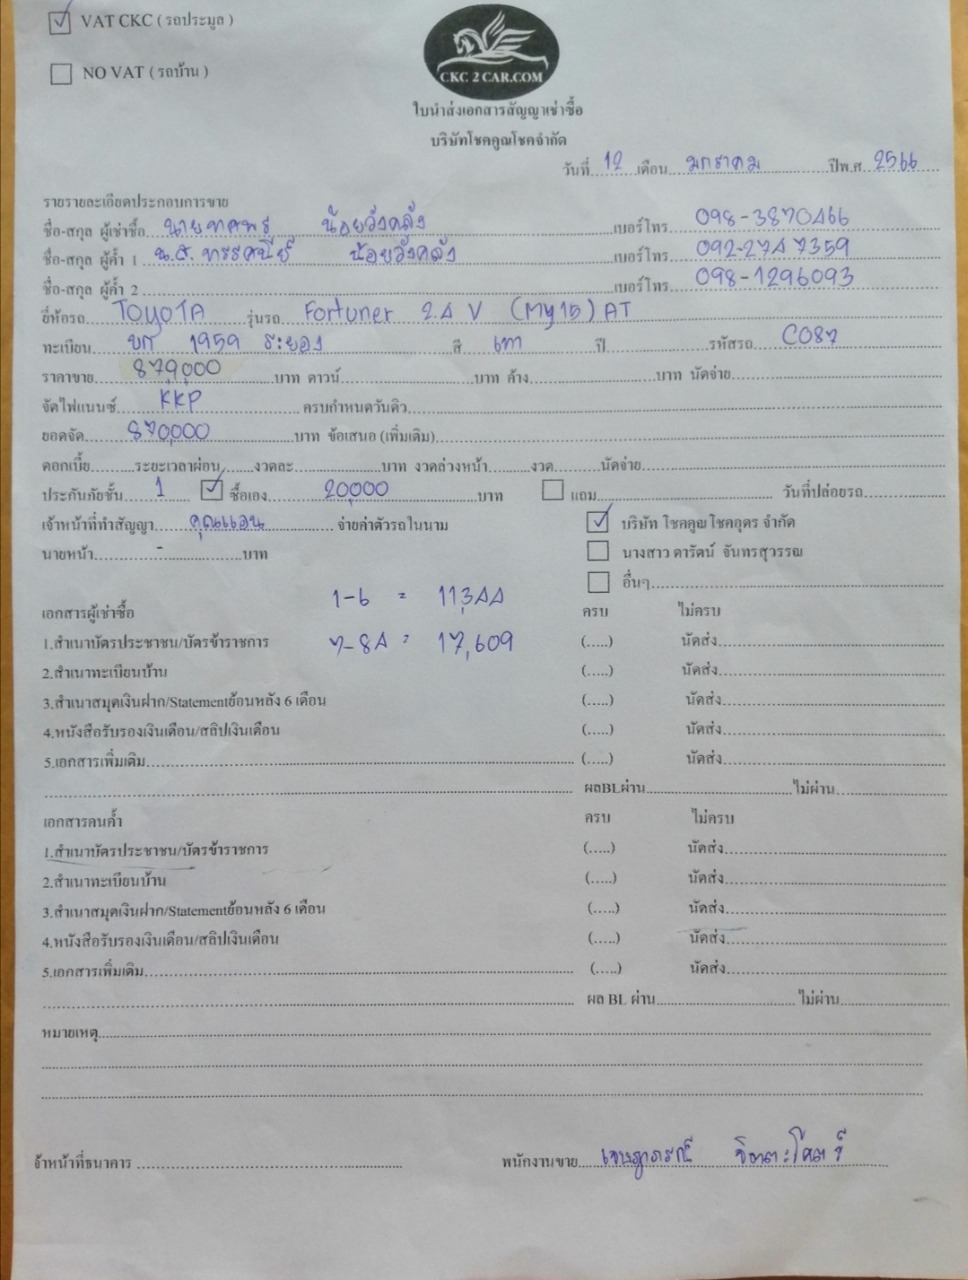 ☑ VAT CKC ( รถประมูล )
☐ NO VAT ( รถบ้าน )
CKC 2 CAR.COM
ใบนำส่งเอกสารสัญญาเช่าซื้อ
บริษัทโชคคูณโชคจำกัด
วันที่ 12 เดือน มกราคม ปีพ.ศ. 2566
รายรายละเอียดประกอบการขาย
ชื่อ-สกุล ผู้เช่าซื้อ น้อยวังคลัง เบอร์โทร. 098-3870466
ชื่อ-สกุล ผู้ค้ำ 1 น.ส. ทรรศนีย์ น้อยวังคลัง เบอร์โทร. 092-2747359
ชื่อ-สกุล ผู้ค้ำ 2 เบอร์โทร. 098-1296093
ยี่ห้อรถ TOYOTA รุ่นรถ Fortuner 2.4 V (My15) AT
ทะเบียน 1959 ระยอง สี เทา ปี รหัสรถ C087
ราคาขาย 879,000 บาท ดาวน์ บาท ค้าง บาท นัดจ่าย
จัดไฟแนนซ์ KKP ครบกำหนดวันดิว
ยอดจัด 870,000 บาท ข้อเสนอ (เพิ่มเติม)
ดอกเบี้ย ระยะเวลาผ่อน งวดละ บาท งวดล่วงหน้า งวด นัดจ่าย
ประกันภัยชั้น 1 ☑ ซื้อเอง 20000 บาท ☐ แถม วันที่ปล่อยรถ
เจ้าหน้าที่ทำสัญญา คุณแอน จ่ายค่าตัวรถในนาม ☑ บริษัท โชคคูณโชคอุดร จำกัด
นายหน้า - บาท ☐ นางสาว ดารัตน์ จันทรสุวรรณ
☐ อื่นๆ
1-6 = 11,344
เอกสารผู้เช่าซื้อ ครบ ไม่ครบ
7-84 = 17,609
1.สำเนาบัตรประชาชน/บัตรข้าราชการ (.....) นัดส่ง
2.สำเนาทะเบียนบ้าน (.....) นัดส่ง
3.สำเนาสมุดเงินฝาก/Statementย้อนหลัง 6 เดือน (.....) นัดส่ง
4.หนังสือรับรองเงินเดือน/สลิปเงินเดือน (.....) นัดส่ง
5.เอกสารเพิ่มเติม (.....) นัดส่ง
ผลBLผ่าน ไม่ผ่าน
เอกสารคนค้ำ ครบ ไม่ครบ
1.สำเนาบัตรประชาชน/บัตรข้าราชการ (.....) นัดส่ง
2.สำเนาทะเบียนบ้าน (.....) นัดส่ง
3.สำเนาสมุดเงินฝาก/Statementย้อนหลัง 6 เดือน (.....) นัดส่ง
4.หนังสือรับรองเงินเดือน/สลิปเงินเดือน (.....) นัดส่ง
5.เอกสารเพิ่มเติม (.....) นัดส่ง
ผล BL ผ่าน ไม่ผ่าน
หมายเหตุ
จ้าหน้าที่ธนาคาร พนักงานขาย